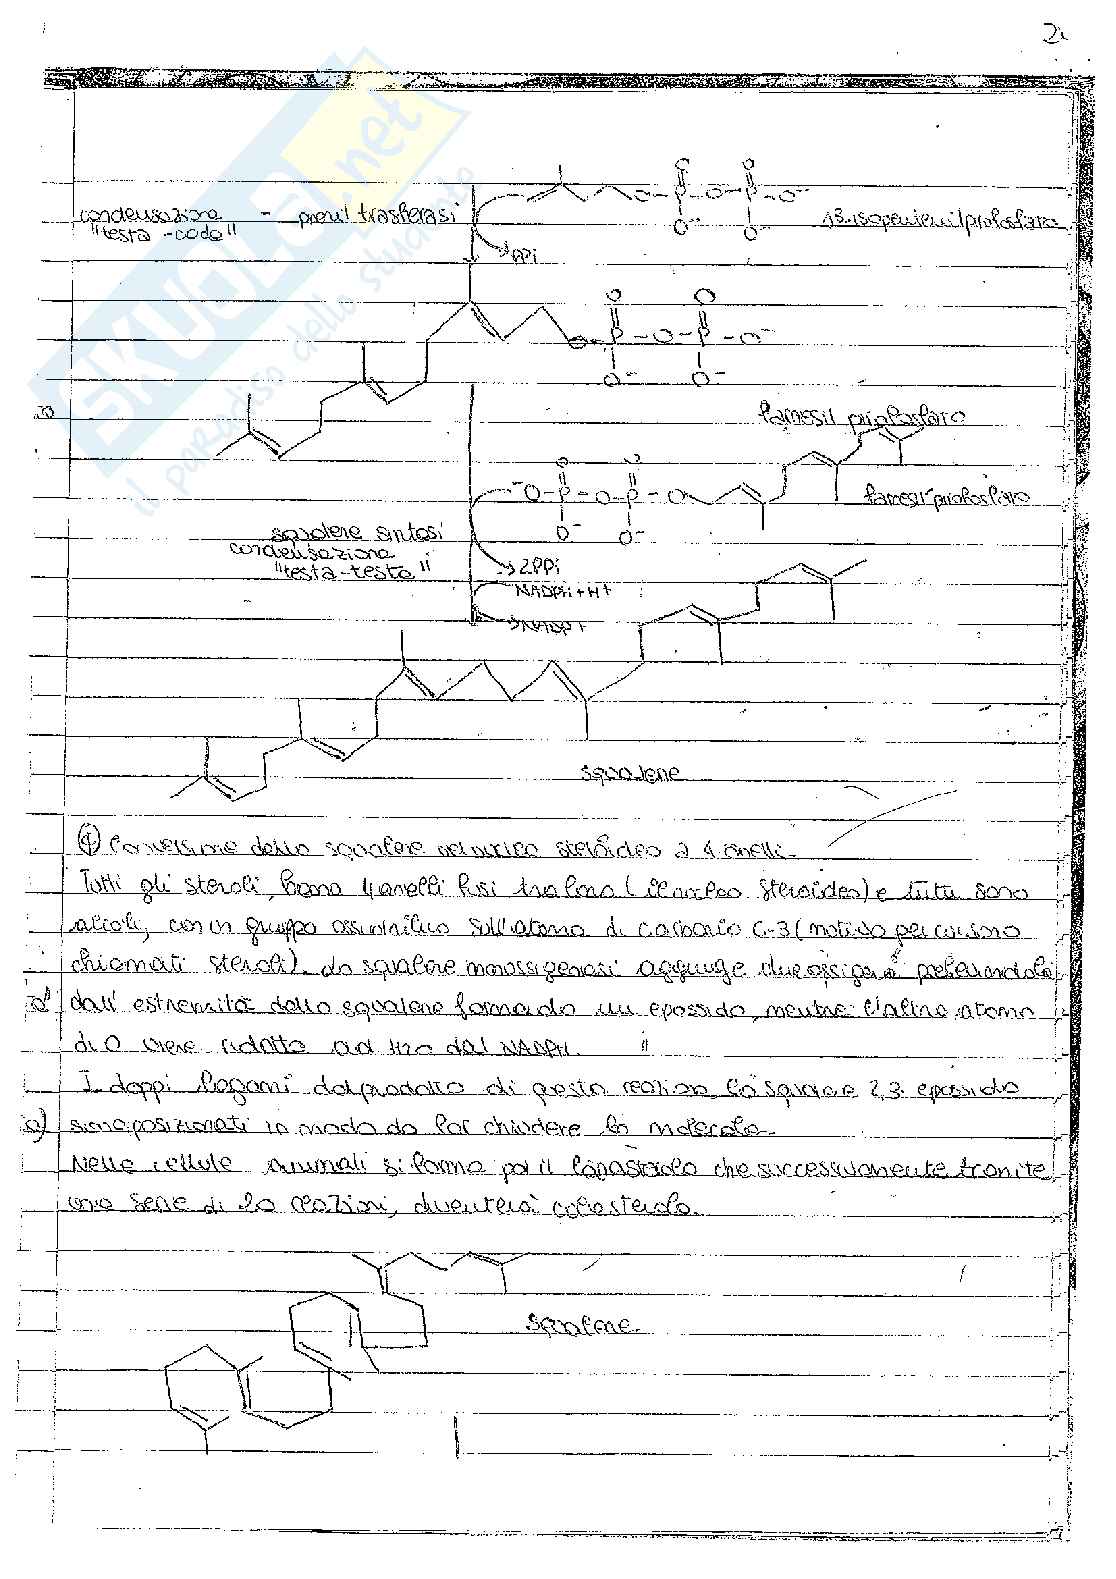 2
SKUOLA.net
il paradiso dello studente
O O
O-P-O-P-O⁻
O⁻ O⁻
condensazione - prenil trasferasi
"testa-coda"
Δ3-isopentenilpirofosfato
PPi
O O
O-P-O-P-O⁻
O⁻ O⁻
farnesil pirofosfato
O O
⁻O-P-O-P-O
O⁻ O⁻
farnesil-pirofosfato
squalene sintasi
condensazione
"testa-testa"
2PPi
NADPH+H+
NADP+
squalene
④ Conversione dello squalene nel nucleo steroideo a 4 anelli.
Tutti gli steroli, hanno 4 anelli fusi tra loro (il nucleo steroideo) e tutti sono
alcoli, con un gruppo ossidrilico sull'atomo di carbonio C-3 (motivo per cui sono
chiamati steroli). La squalene monossigenasi aggiunge due ossigeni prelevandola
dall'estremità dello squalene formando un epossido, mentre l'altro atomo
di O viene ridotto ad H2O dal NADPH.
I doppi legami del prodotto di questa reazione, lo squalene 2,3 epossido
sono posizionati in modo da far chiudere la molecola.
Nelle cellule animali si forma poi il lanosterolo che successivamente tramite
una serie di 20 reazioni, diventerà colesterolo.
squalene